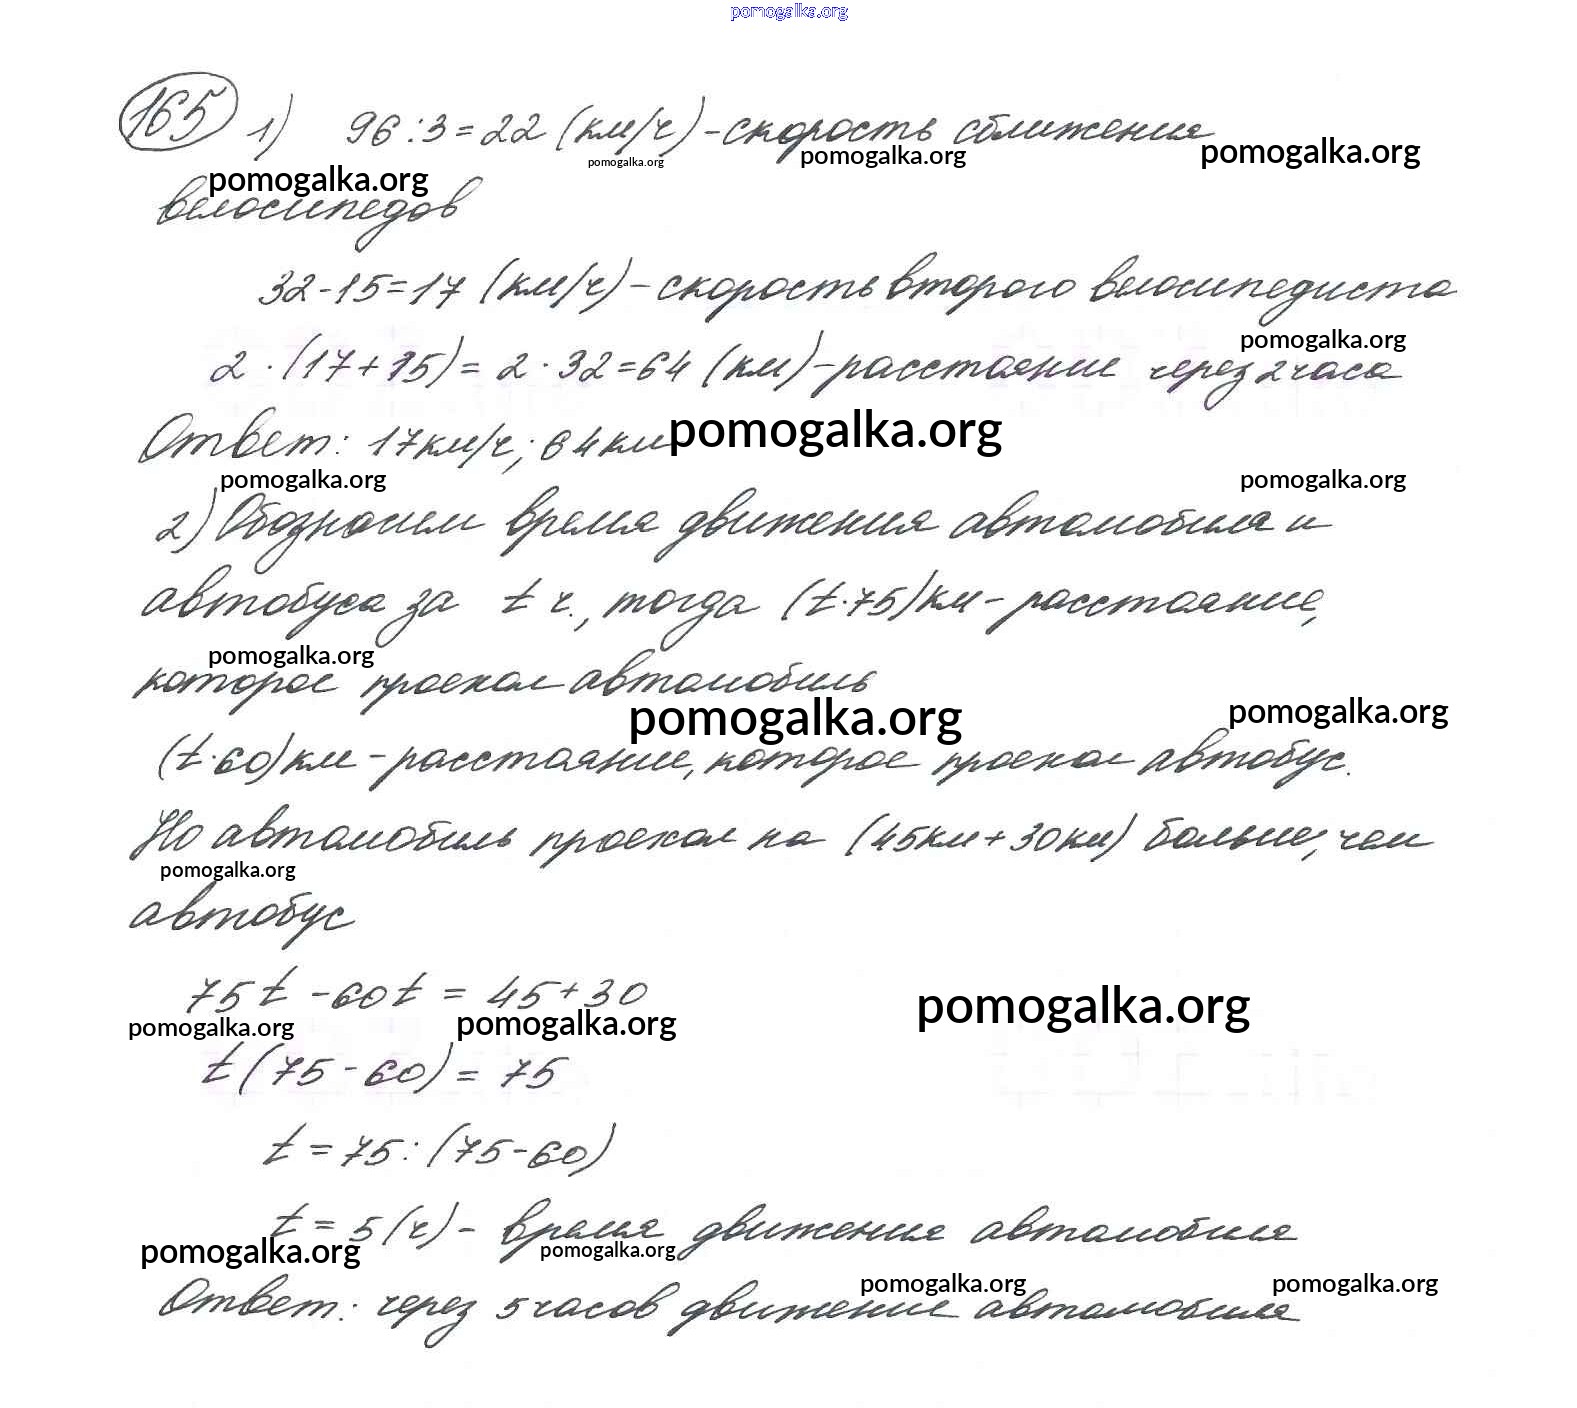 pomogalka.org
165 1) 96 : 3 = 22 (км/ч) - скорость сближения
pomogalka.org pomogalka.org pomogalka.org
pomogalka.org
велосипедов
32 - 15 = 17 (км/ч) - скорость второго велосипедиста
pomogalka.org
2 · (17 + 15) = 2 · 32 = 64 (км) - расстояние через 2 часа
Ответ: 17 км/ч; 64 км pomogalka.org
pomogalka.org pomogalka.org
2) Обозначим время движения автомобиля и
автобуса за t ч., тогда (t · 75) км - расстояние,
pomogalka.org
которое проехал автомобиль
pomogalka.org pomogalka.org
(t · 60) км - расстояние, которое проехал автобус.
Но автомобиль проехал на (45 км + 30 км) больше, чем
pomogalka.org
автобус
75t - 60t = 45 + 30
pomogalka.org pomogalka.org pomogalka.org
t (75 - 60) = 75
t = 75 : (75 - 60)
t = 5 (ч) - время движения автомобиля
pomogalka.org pomogalka.org
pomogalka.org pomogalka.org
Ответ: через 5 часов движение автомобиля